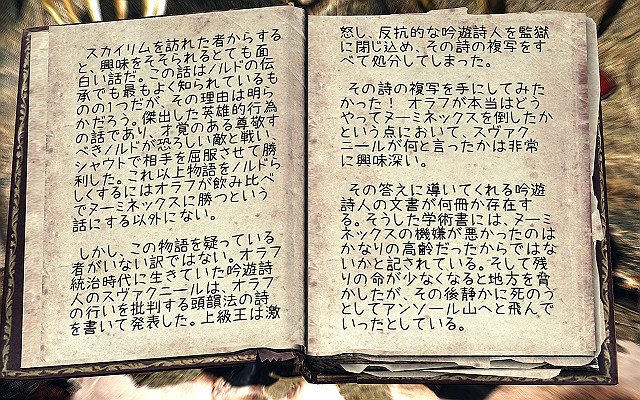 スカイリムを訪れた者からする
と、興味をそそられるとても面
白い話だ。この話はノルドの伝
承でも最もよく知られているも
のの1つだが、その理由は明ら
かだろう。傑出した英雄的行為
の話であり、才覚のある尊敬す
べきノルドが恐ろしい敵と戦い、
シャウトで相手を屈服させて勝
利した。これ以上物語をノルドら
しくするにはオラフが飲み比べ
でヌーミネックスに勝つという
話にする以外にない。
しかし、この物語を疑っている
者がいない訳ではない。オラフ
統治時代に生きていた吟遊詩
人のスヴァクニールは、オラフ
の行いを批判する頭韻法の詩
を書いて発表した。上級王は激
怒し、反抗的な吟遊詩人を監獄
に閉じ込め、その詩の複写をす
べて処分してしまった。
その詩の複写を手にしてみた
かった! オラフが本当はどう
やってヌーミネックスを倒したか
という点において、スヴァク
ニールが何と言ったかは非常
に興味深い。
その答えに導いてくれる吟遊
詩人の文書が何冊か存在す
る。そうした学術書には、ヌーミ
ネックスの機嫌が悪かったのは
かなりの高齢だったからではな
いかと記されている。そして残
りの命が少なくなると地方を脅
かしたが、その後静かに死のう
としてアンソール山へと飛んで
いったとしている。